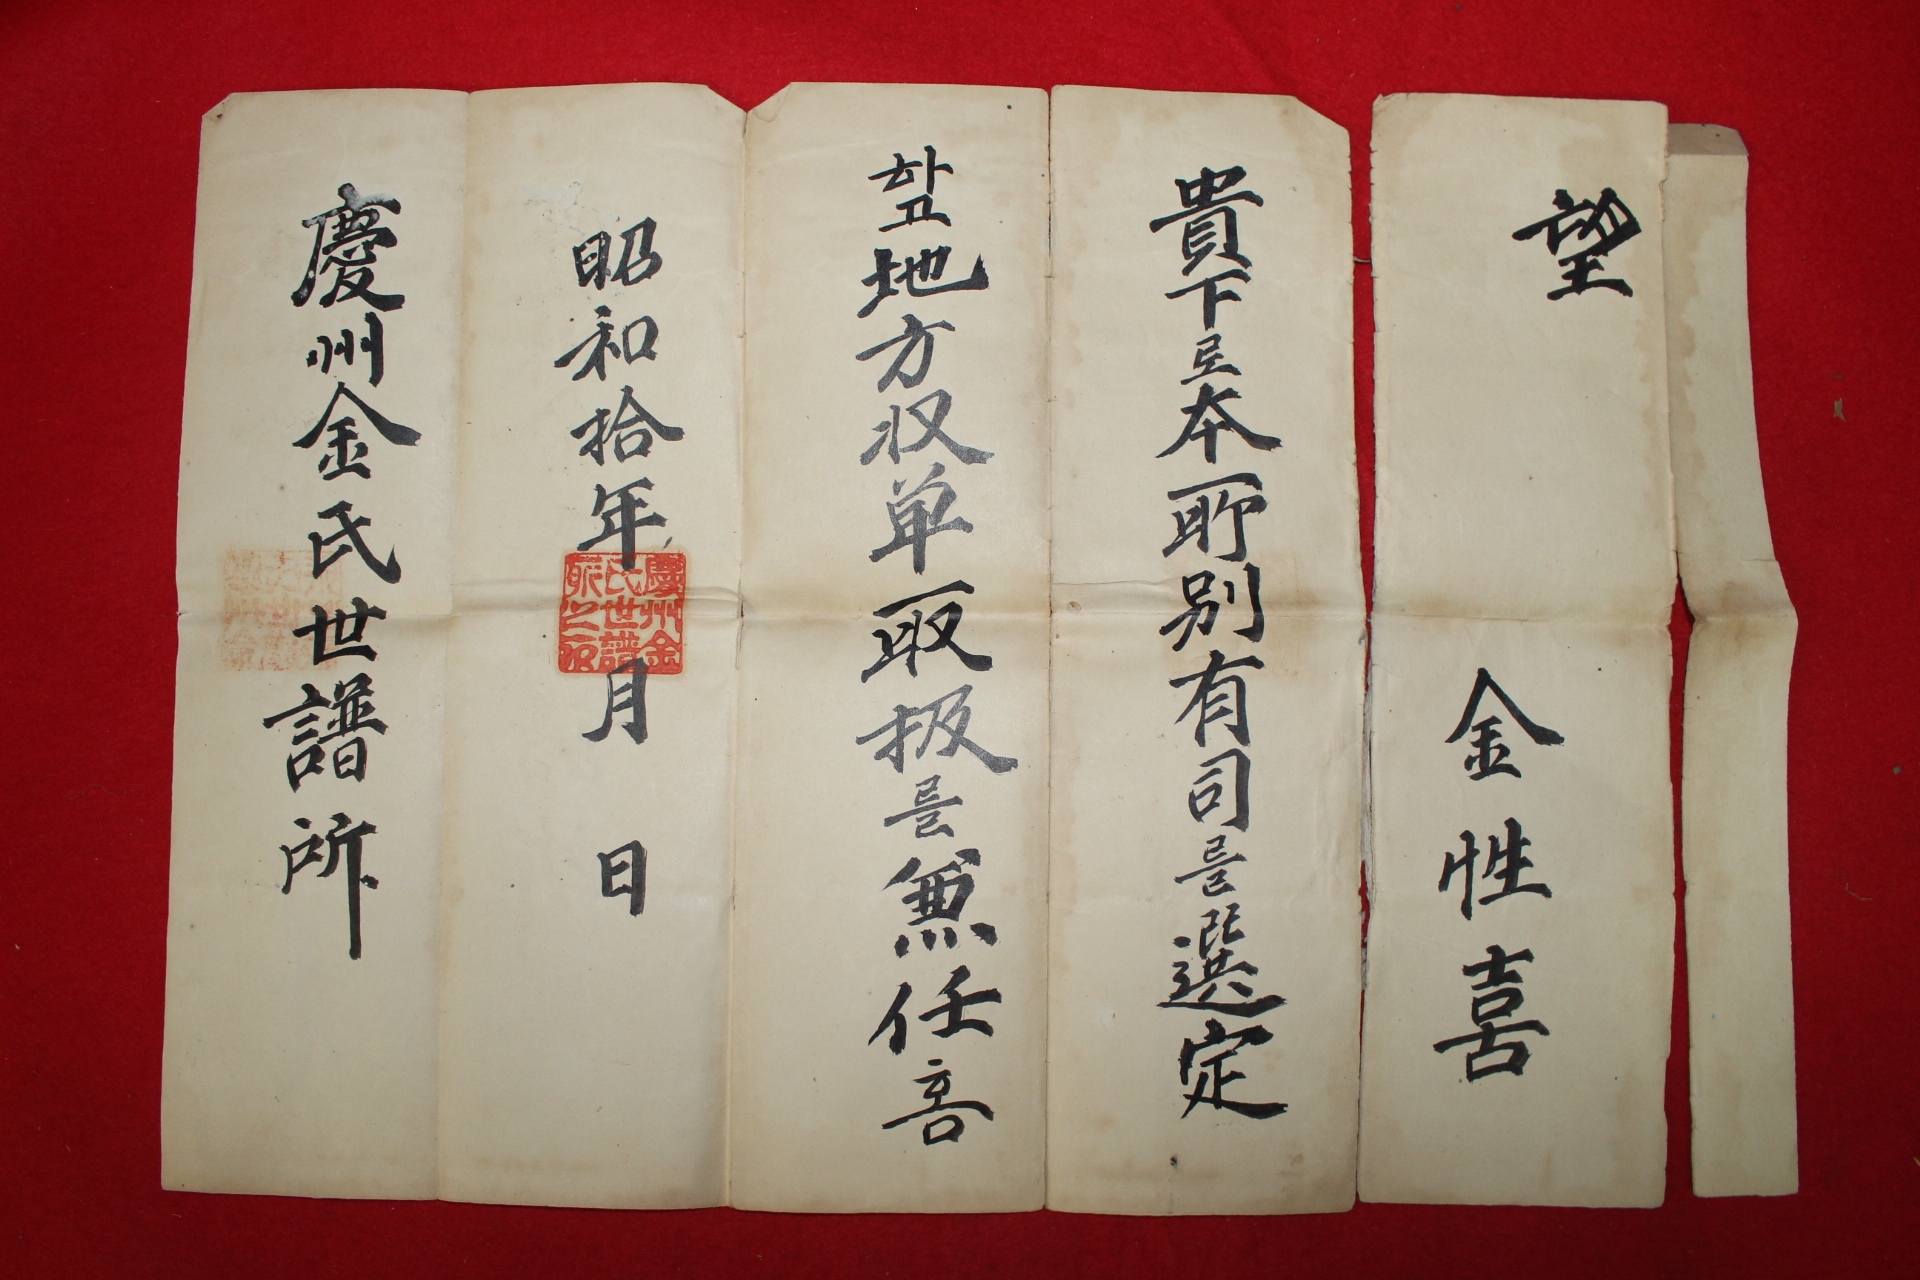 望
金性喜
貴下로本所別有司를選定
하고地方収单取扱를兼任홈
昭和拾年 月 日
慶州金氏世譜所
慶州金
氏世譜
所之印